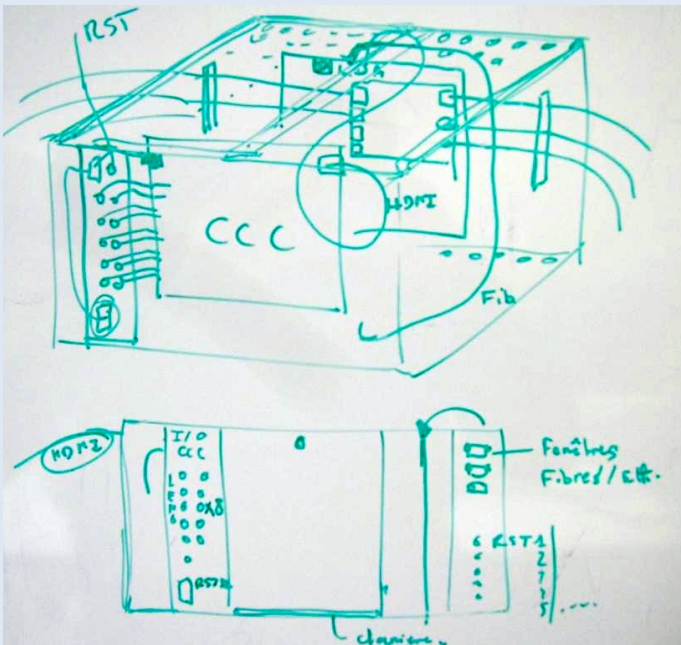 RST
CCC
HDMI
Fib
HDMI
I/O
CCC
LEMO
x8
Fenêtres
Fibres/
RST 1
2
5 ....
charnière